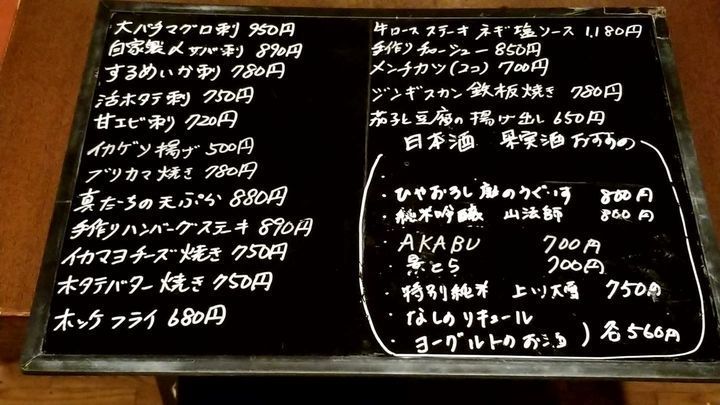 大バチマグロ刺 950円
自家製〆サバ刺 890円
するめいか刺 780円
活ホタテ刺 750円
甘エビ刺 720円
イカゲソ揚げ 500円
ブリカマ焼き 780円
真だちの天ぷら 880円
手作りハンバーグステーキ 890円
イカマヨチーズ焼き 750円
ホタテバター焼き 750円
ホッケフライ 680円
牛ロースステーキ ネギ塩ソース 1,180円
手作りチャーシュー 850円
メンチカツ(2コ) 700円
ジンギスカン鉄板焼き 780円
茄子と豆腐の揚げ出し 650円
日本酒 果実酒 おすすめ
・ひやおろし 庭のうぐいす 800円
・純米吟醸 山法師 800円
・AKABU 700円
・黒とら 700円
・特別純米 上川大雪 750円
・なしのリキュール
・ヨーグルトのお酒 ) 各560円